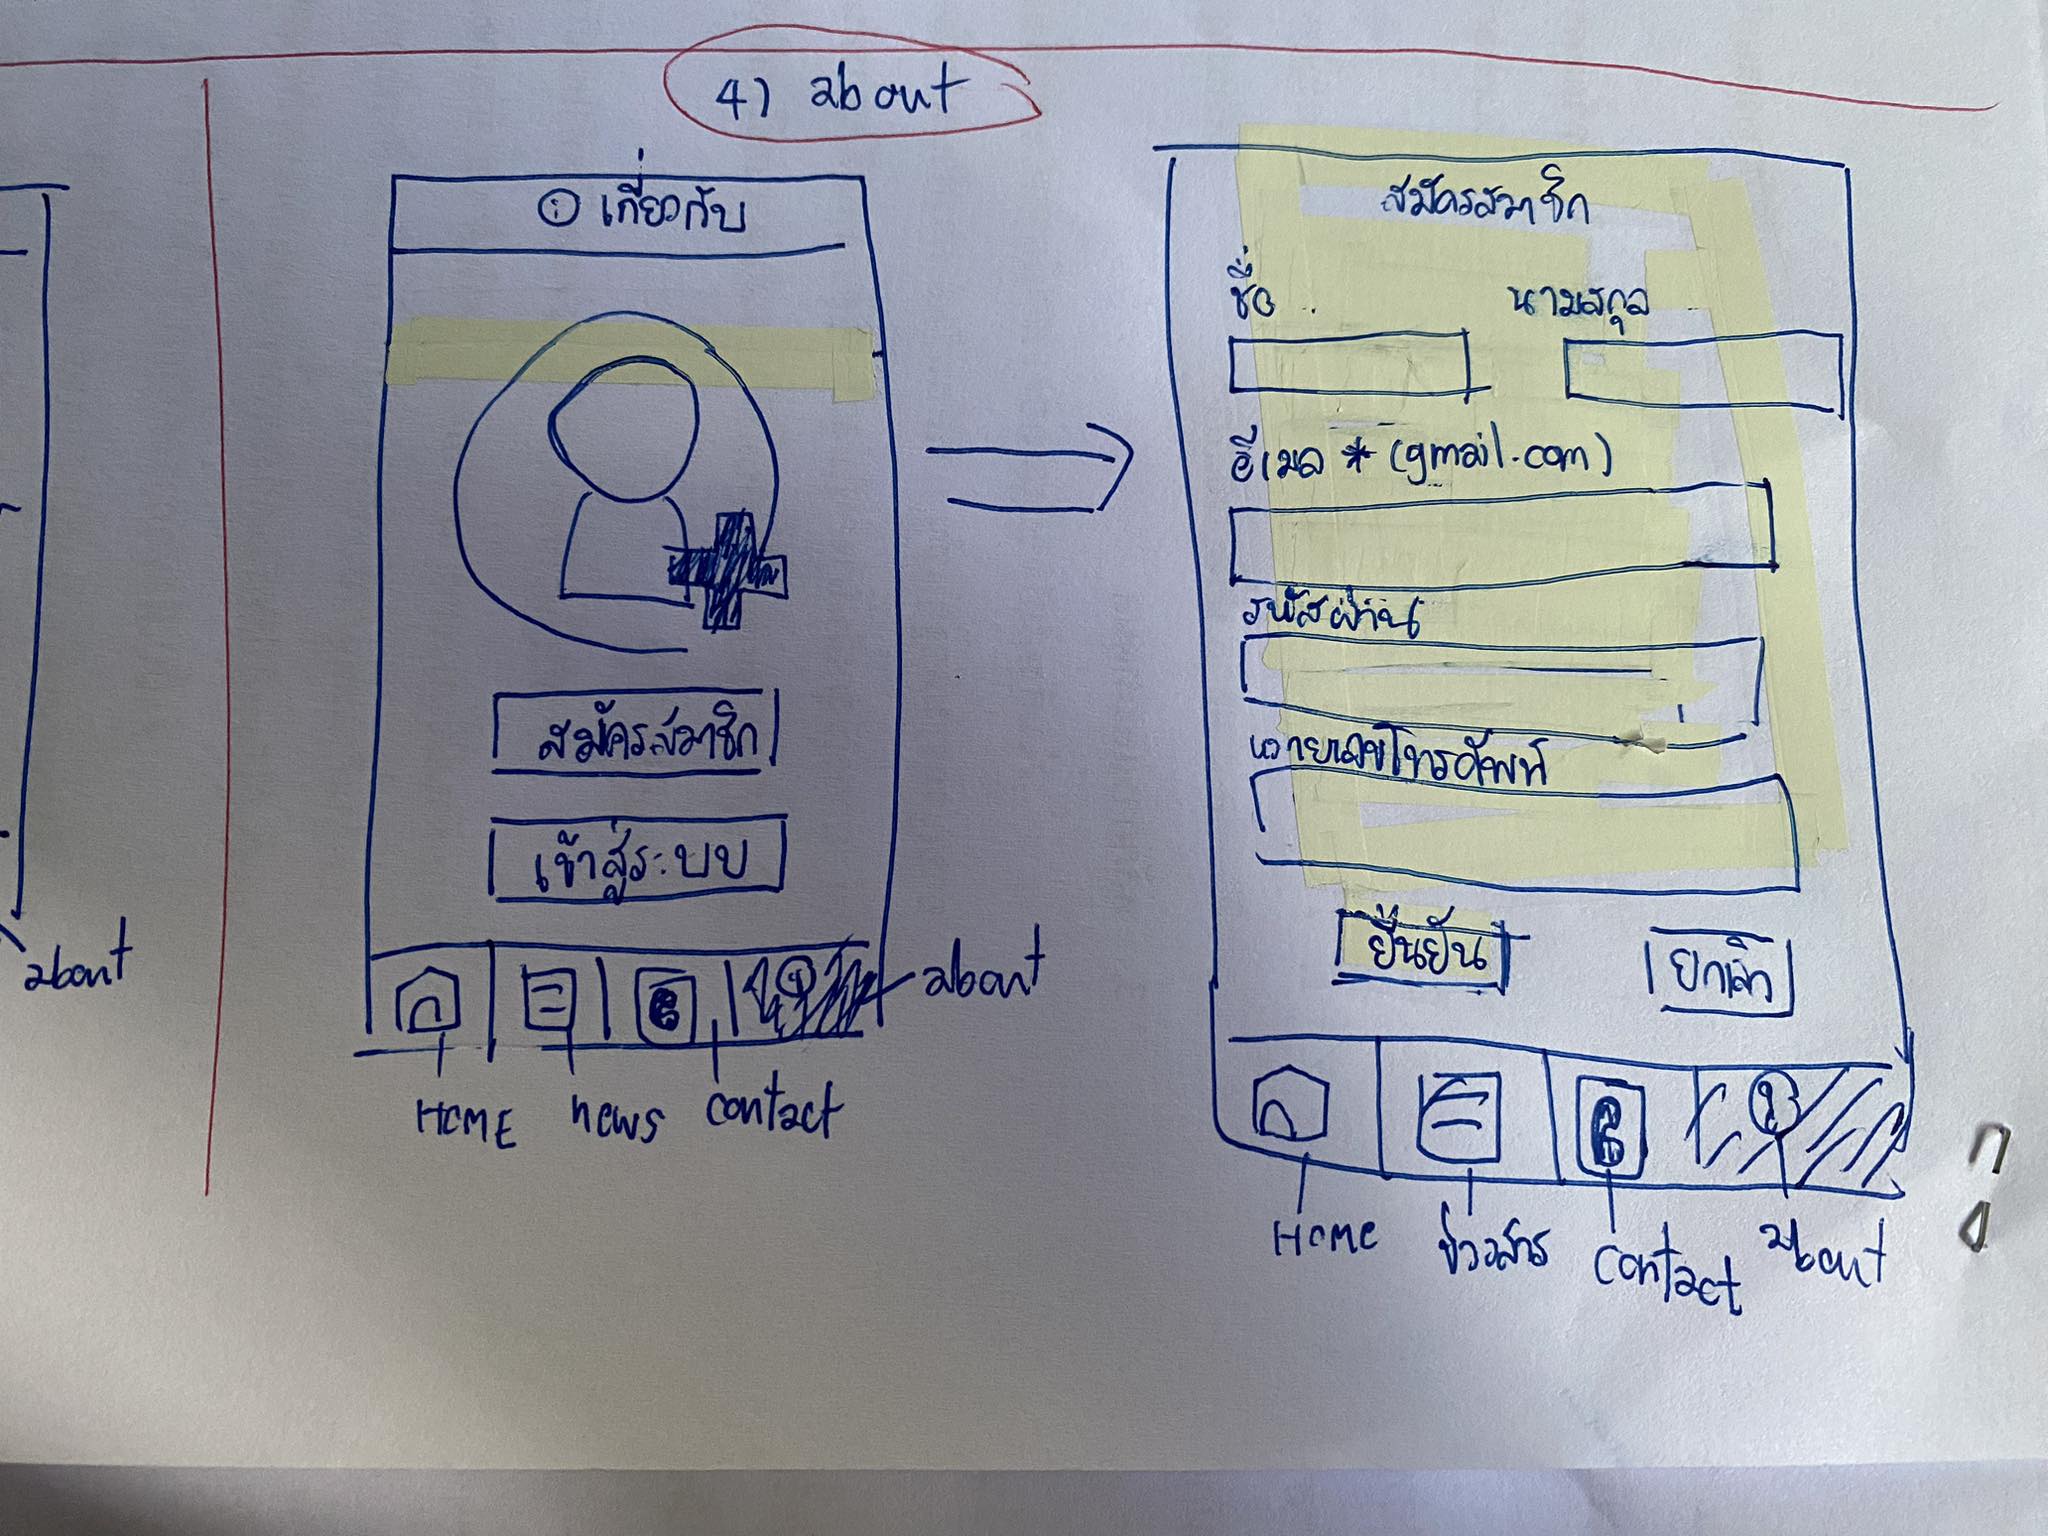 4) about
ⓘ เกี่ยวกับ
สมัครสมาชิก
เข้าสู่ระบบ
about
HOME news contact
about
สมัครสมาชิก
ชื่อ นามสกุล
อีเมล * (gmail.com)
รหัสผ่าน
หมายเลขโทรศัพท์
ยืนยัน ยกเลิก
HOME ข่าวสาร contact about